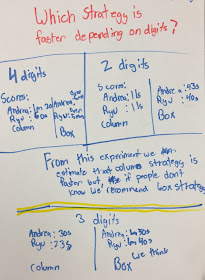 Which Strategy is
faster depending on digits?
4 digits
Scores:
Andrea: 1m 20
Ryu: 60s
Column
Andrea:
Ryu:
Box
2 digits
Scores:
Andrea: 11s
Ryu: 11s
Column
Andrea: 43s
Ryu: 40s
Box
From this experiment we
estimate that column strategy is
faster but if people don't
know we recommend box strategy
3 digits
Andrea: 30s
Ryu: 23s
Column
Andrea: 1m 50s
Ryu: 1m 40s
we think
Box